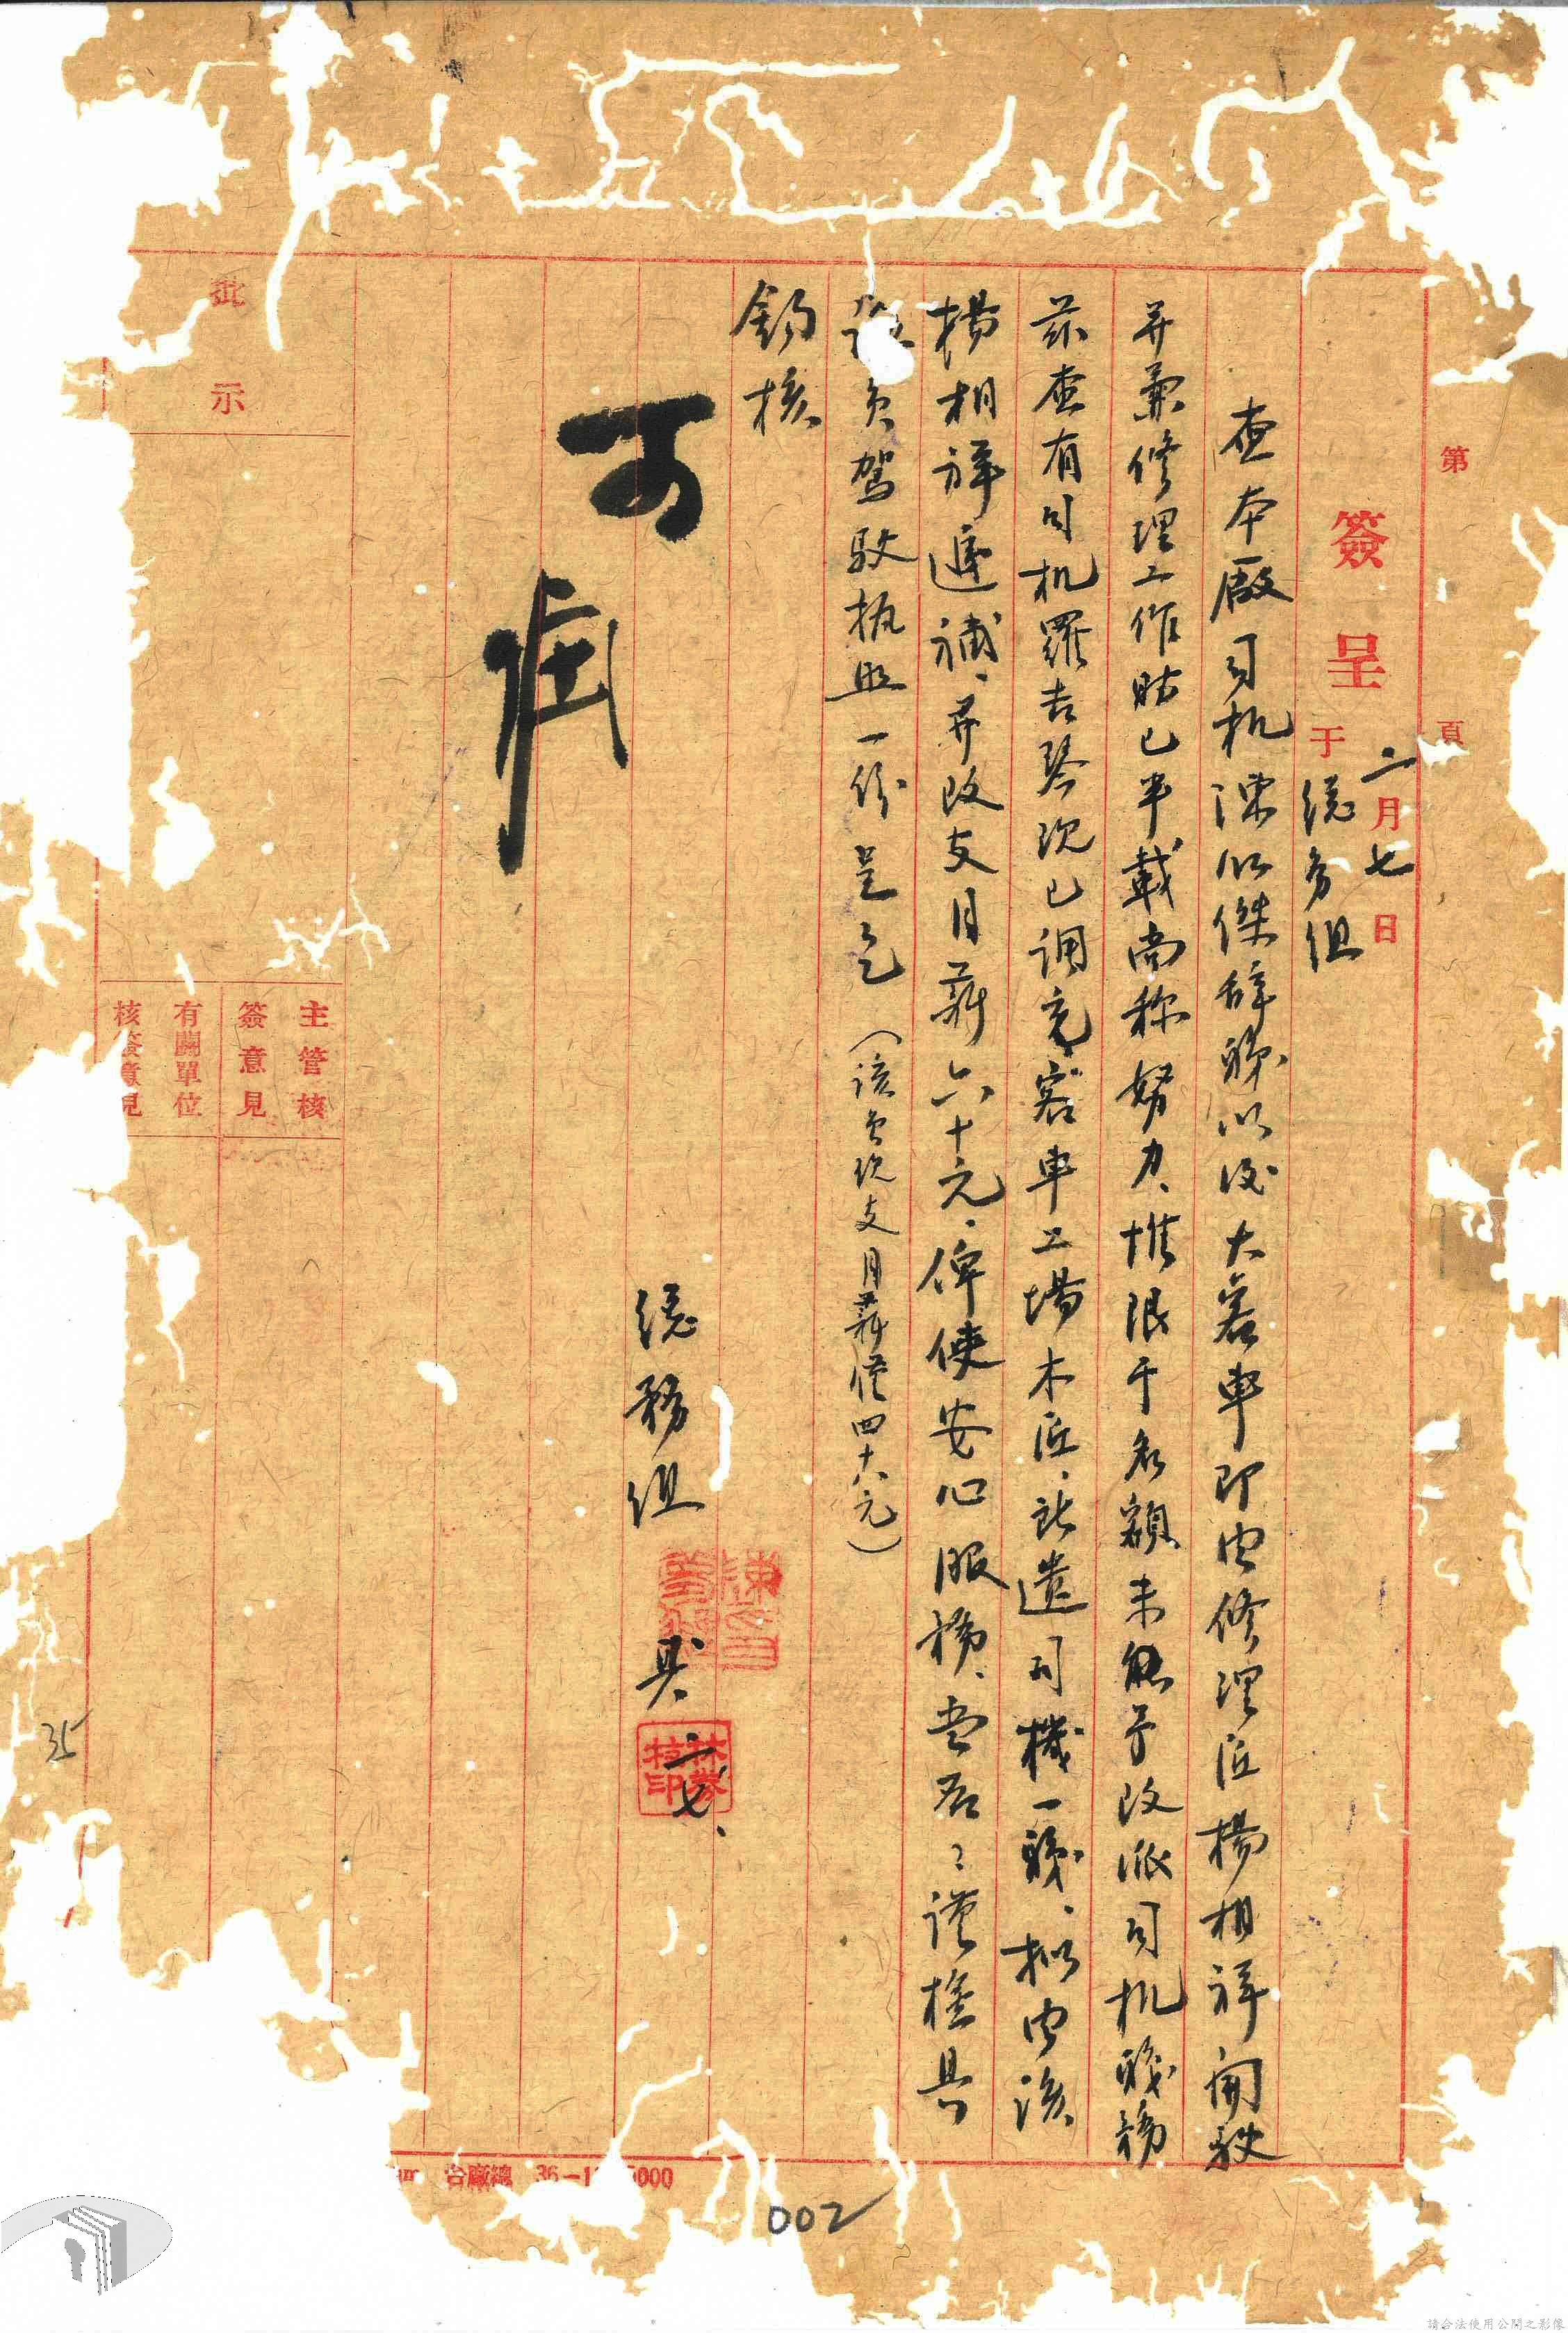 第 頁
簽呈 于總務組
二月七日
查本廠司机陳以傑辞職以後大客車即由修理匠楊相祥開駛
并兼修理工作時已半載尚称努力、惟限于名額未能予改派司机職務
茲查有司机羅吉琴現已調充客車工場木匠、所遺司機一職、拟由該
楊相祥遞補、并改支月薪六十元、俾使安心服務、當否、謹檢具
該員駕駛执照一份呈乞（該員現支月薪僅四十八元）
鈞核
總務組
具
二、七、
林
印
可
批示
主管核
簽意見
有關單位
核簽意見
35
台廠總 36-1 5000
002
請合法使用公開之影像